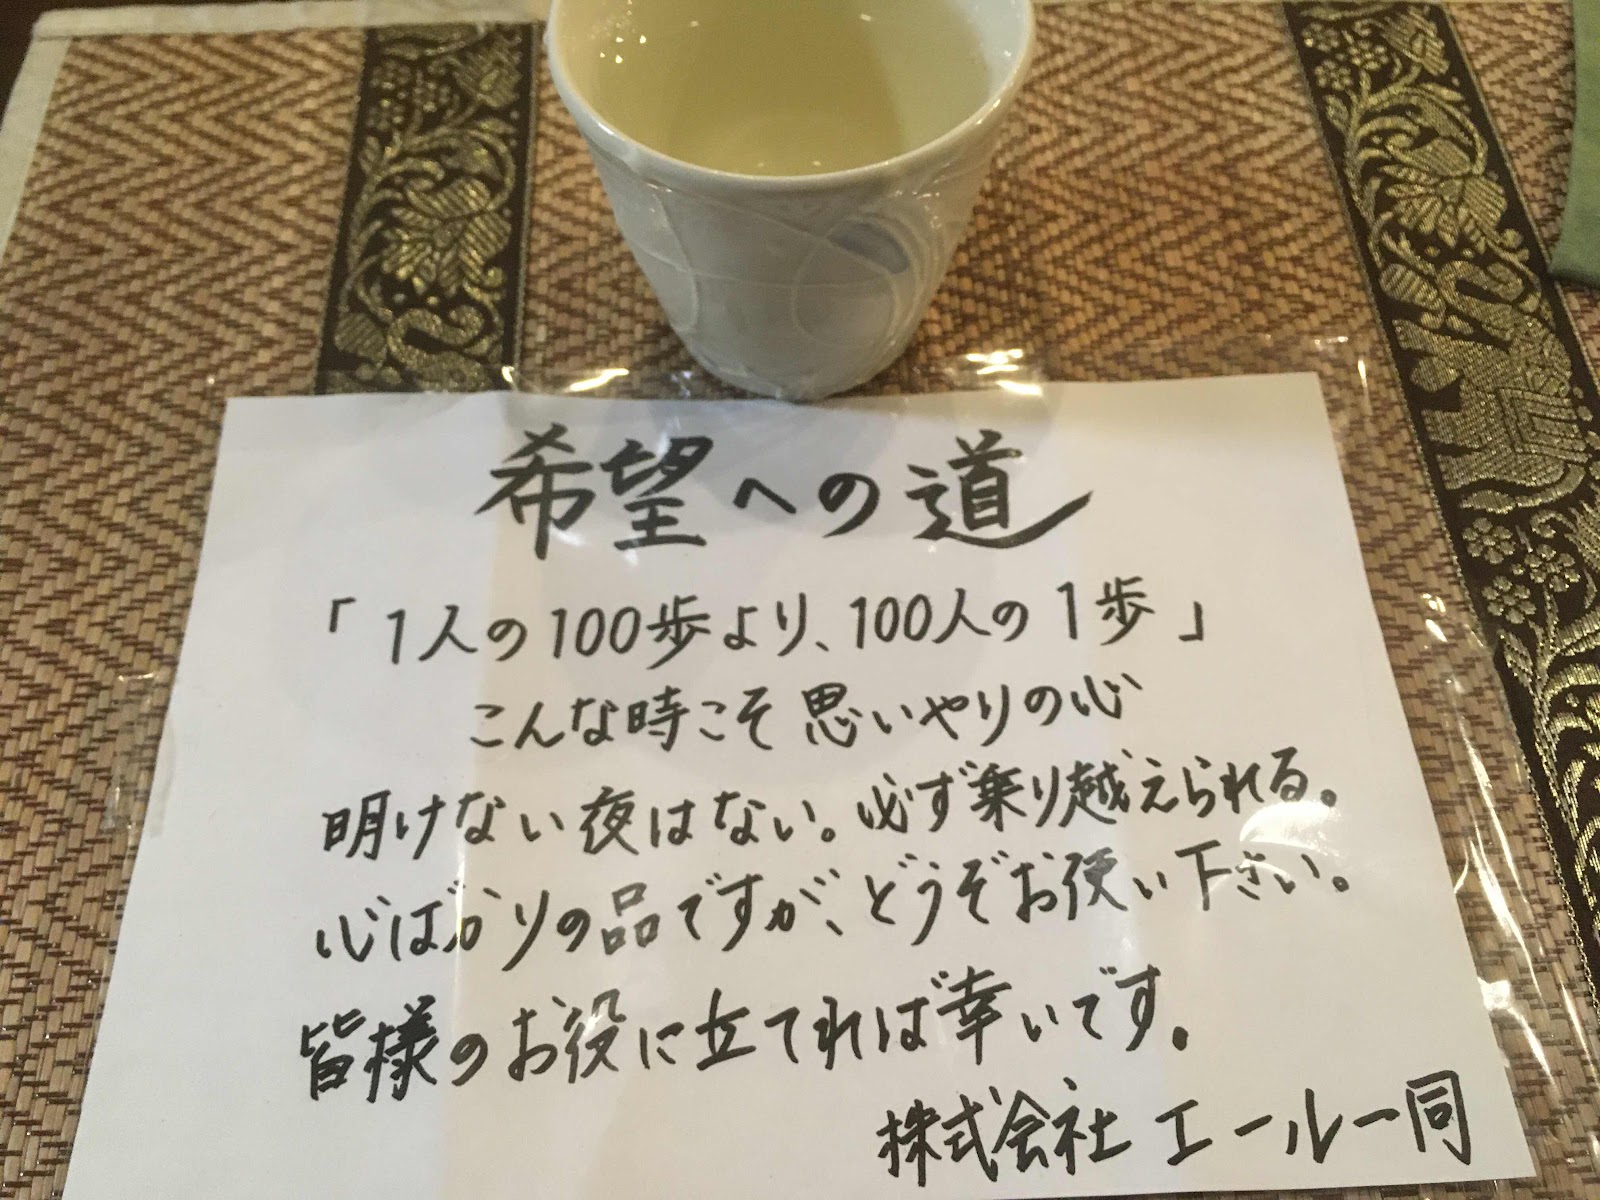 希望への道
「1人の100歩より、100人の1歩」
こんな時こそ思いやりの心
明けない夜はない。必ず乗り越えられる。
心ばかりの品ですが、どうぞお使い下さい。
皆様のお役に立てれば幸いです。
株式会社エール一同